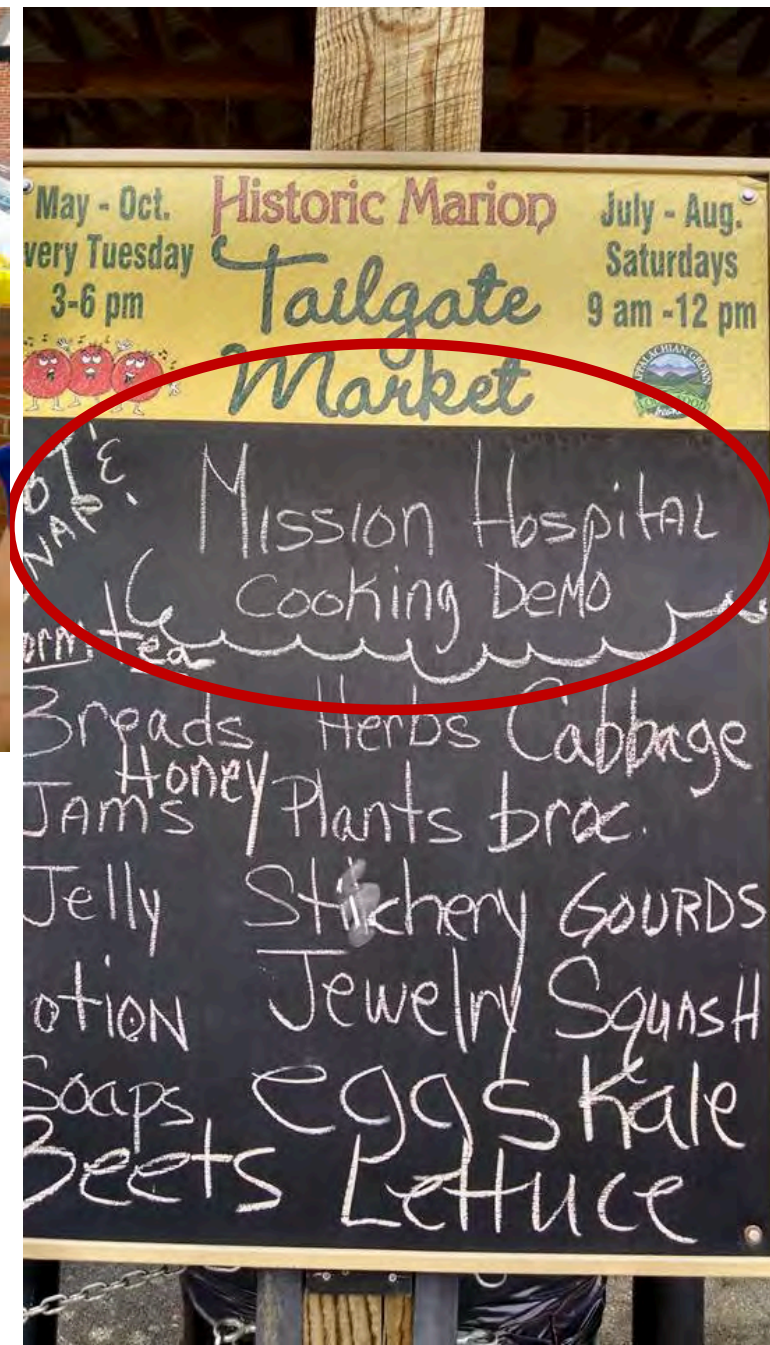 May - Oct.
very Tuesday
3-6 pm
Historic Marion
Tailgate
Market
July - Aug.
Saturdays
9 am -12 pm
APPALACHIAN GROWN
Mission Hospital
Cooking Demo
orm tea
Breads Herbs Cabbage
Honey
Jams Plants broc.
Jelly Stitchery Gourds
otion Jewelry Squash
Soaps eggs Kale
Beets Lettuce